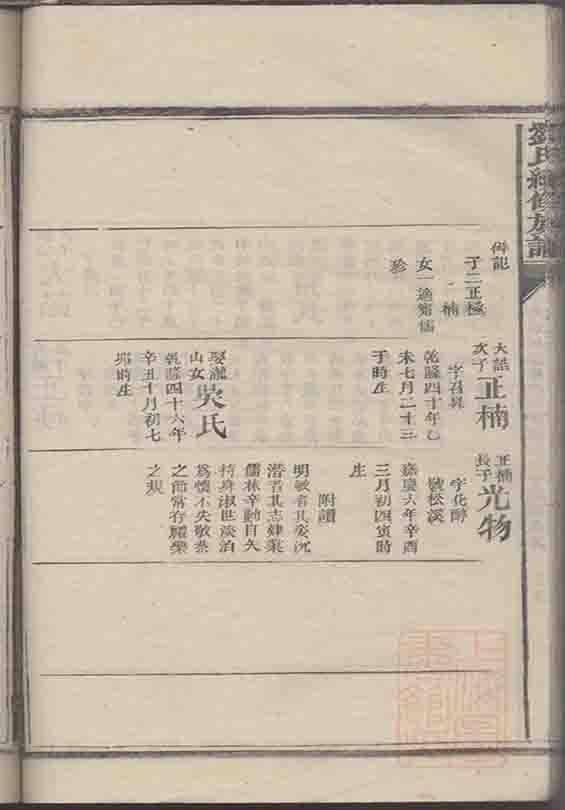 劉氏續修族譜
備記
子二正極
楠
女一適甯儒
珍
大誥
次子
正楠
字召與
乾隆四十年乙
未七月二十三
子時生
娶瀧
山女
吳氏
乾隆四十六年
辛丑十月初七
卯時生
正楠
長子
光物
字化醇
號松溪
嘉慶六年辛酉
三月初四寅時
生
附讚
明敏者其姿沉
潛者其志肄業
儒林辛勤自矢
持身淑世淡泊
為懷不失敬恭
之節常存耀榮
之規